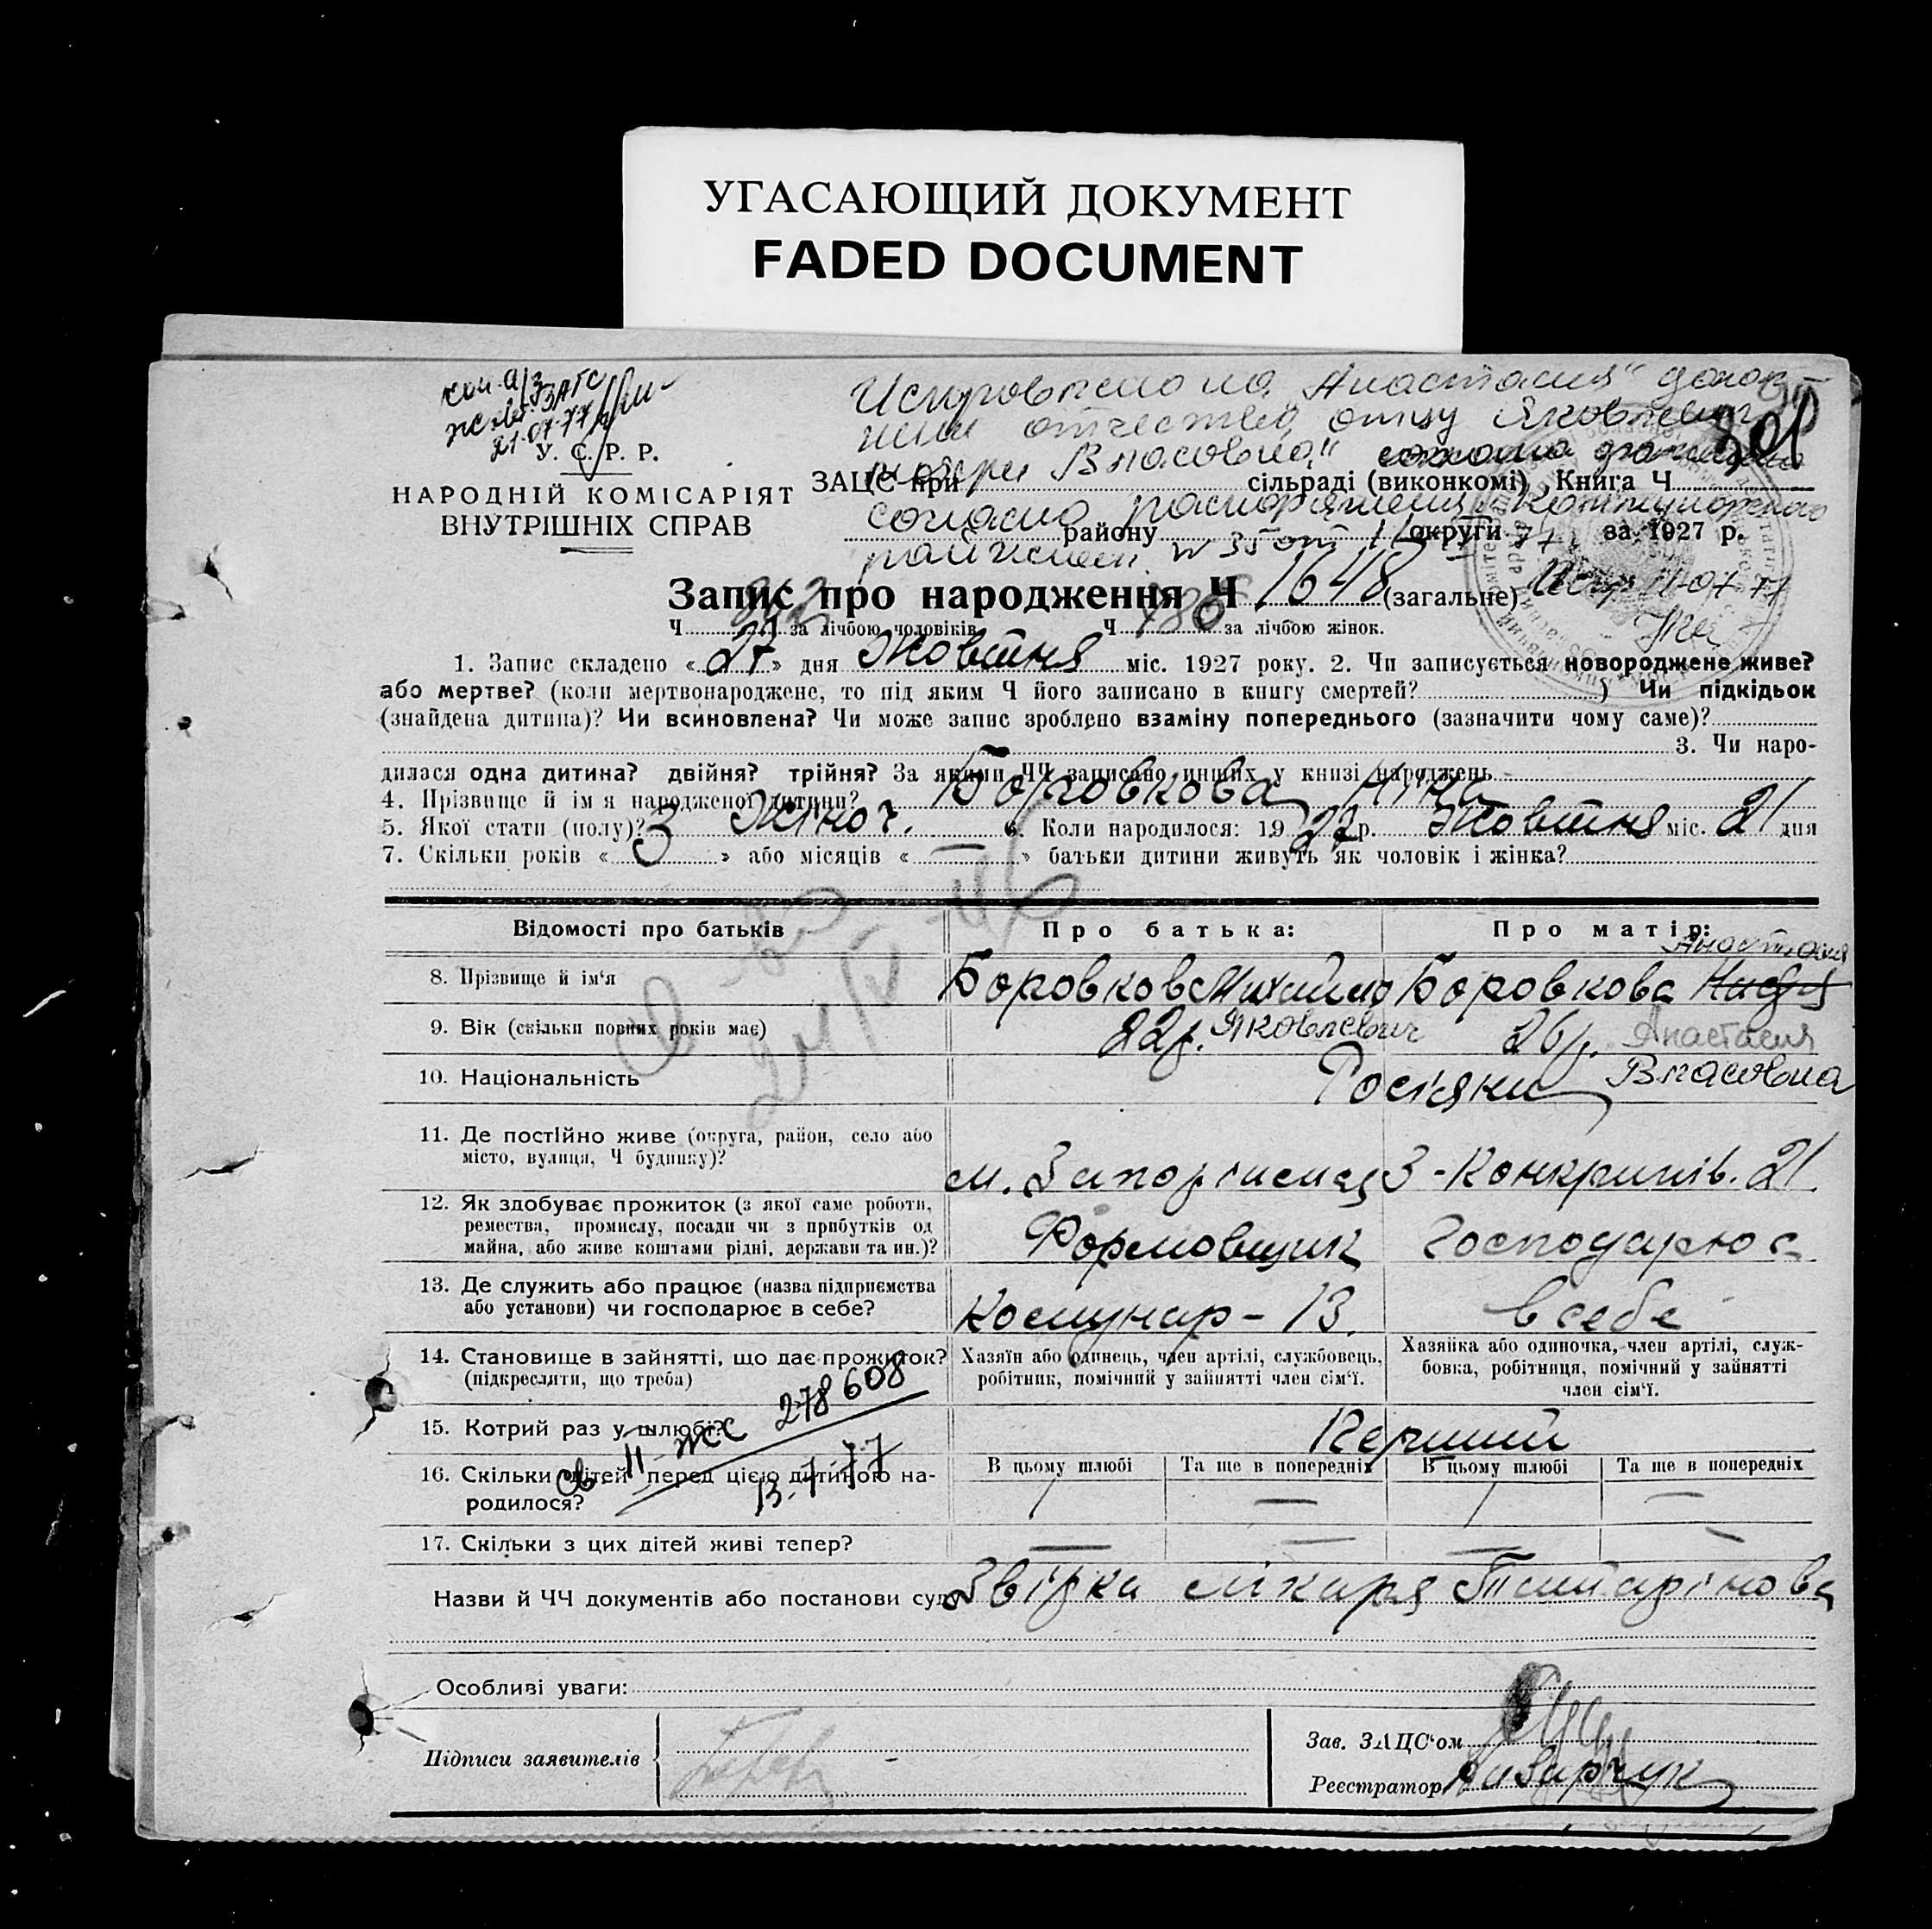 УГАСАЮЩИЙ ДОКУМЕНТ
FADED DOCUMENT
21.07.77
Исправлено на „Анастасия" допол-
нены отчества отцу Яковлевич
матери „Власовна"
согласно распоряжения Коммунарского
№ 35 от
У. С. Р. Р.
НАРОДНІЙ КОМІСАРІЯТ
ВНУТРІШНІХ СПРАВ
ЗАЦС при сільраді (виконкомі) Книга Ч.
району округи за 1927 р.
Запис про народження Ч 1648 (загальне)
11-07-77
Ч. 862 за лічбою чоловіків Ч. 786 за лічбою жінок.
1. Запис складено «27» дня Жовтня міс. 1927 року. 2. Чи записується новороджене живе?
або мертве? (коли мертвонароджене, то під яким Ч його записано в книгу смертей? ) Чи підкідьок
(знайдена дитина)? Чи всиновлена? Чи може запис зроблено взаміну попереднього (зазначити чому саме)?
3. Чи наро-
дилася одна дитина? двійня? трійня? За якими ЧЧ записано инших у книзі народжень
4. Прізвище й ім'я народженої дитини? Боровкова Ніна
5. Якої стати (полу)? Жіноч. 6. Коли народилося: 1927 р. Жовтня міс. 21 дня
7. Скільки років «3» або місяців «—» батьки дитини живуть як чоловік і жінка?
Відомості про батьків Про батька: Про матір:
Анастасия
8. Прізвище й ім'я Боровков Михайло Боровкова
9. Вік (скільки повних років має) 22 р. Яковлевич 26 р. Анастасия
10. Національність Росіяни Власовна
11. Де постійно живе (округа, район, село або
місто, вулиця, Ч будинку)?
м. Запоріжжя 21.
12. Як здобуває прожиток (з якої саме роботи,
ремества, промислу, посади чи з прибутків од
майна, або живе коштами рідні, держави та ин.)?
Формовщик Господарює
13. Де служить або працює (назва підприємства
або установи) чи господарює в себе?
Комунар – 13. в себе
14. Становище в зайнятті, що дає прожиток?
(підкреслити, що треба)
Хазяїн або одинець, член артілі, службовець,
робітник, помічний у зайнятті член сім'ї.
Хазяйка або одиночка, член артілі, служ-
бовка, робітниця, помічний у зайнятті
член сім'ї.
15. Котрий раз у шлюбі? Перший
св. II-ЖС 278608
13.7.77
16. Скільки дітей перед цією дитиною на-
родилося?
В цьому шлюбі Та ще в попередніх В цьому шлюбі Та ще в попередніх
1 — 1 —
17. Скільки з цих дітей живі тепер? — — — —
Назви й ЧЧ документів або постанови суду Звірка лікаря
Особливі уваги:
Підписи заявителів
Зав. ЗАЦС'ом
Реєстратор